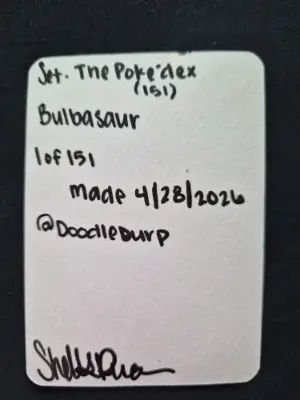 Set. The Poke'dex
(151)
Bulbasaur
1 of 151
made 4/28/2026
@DoodleDurp